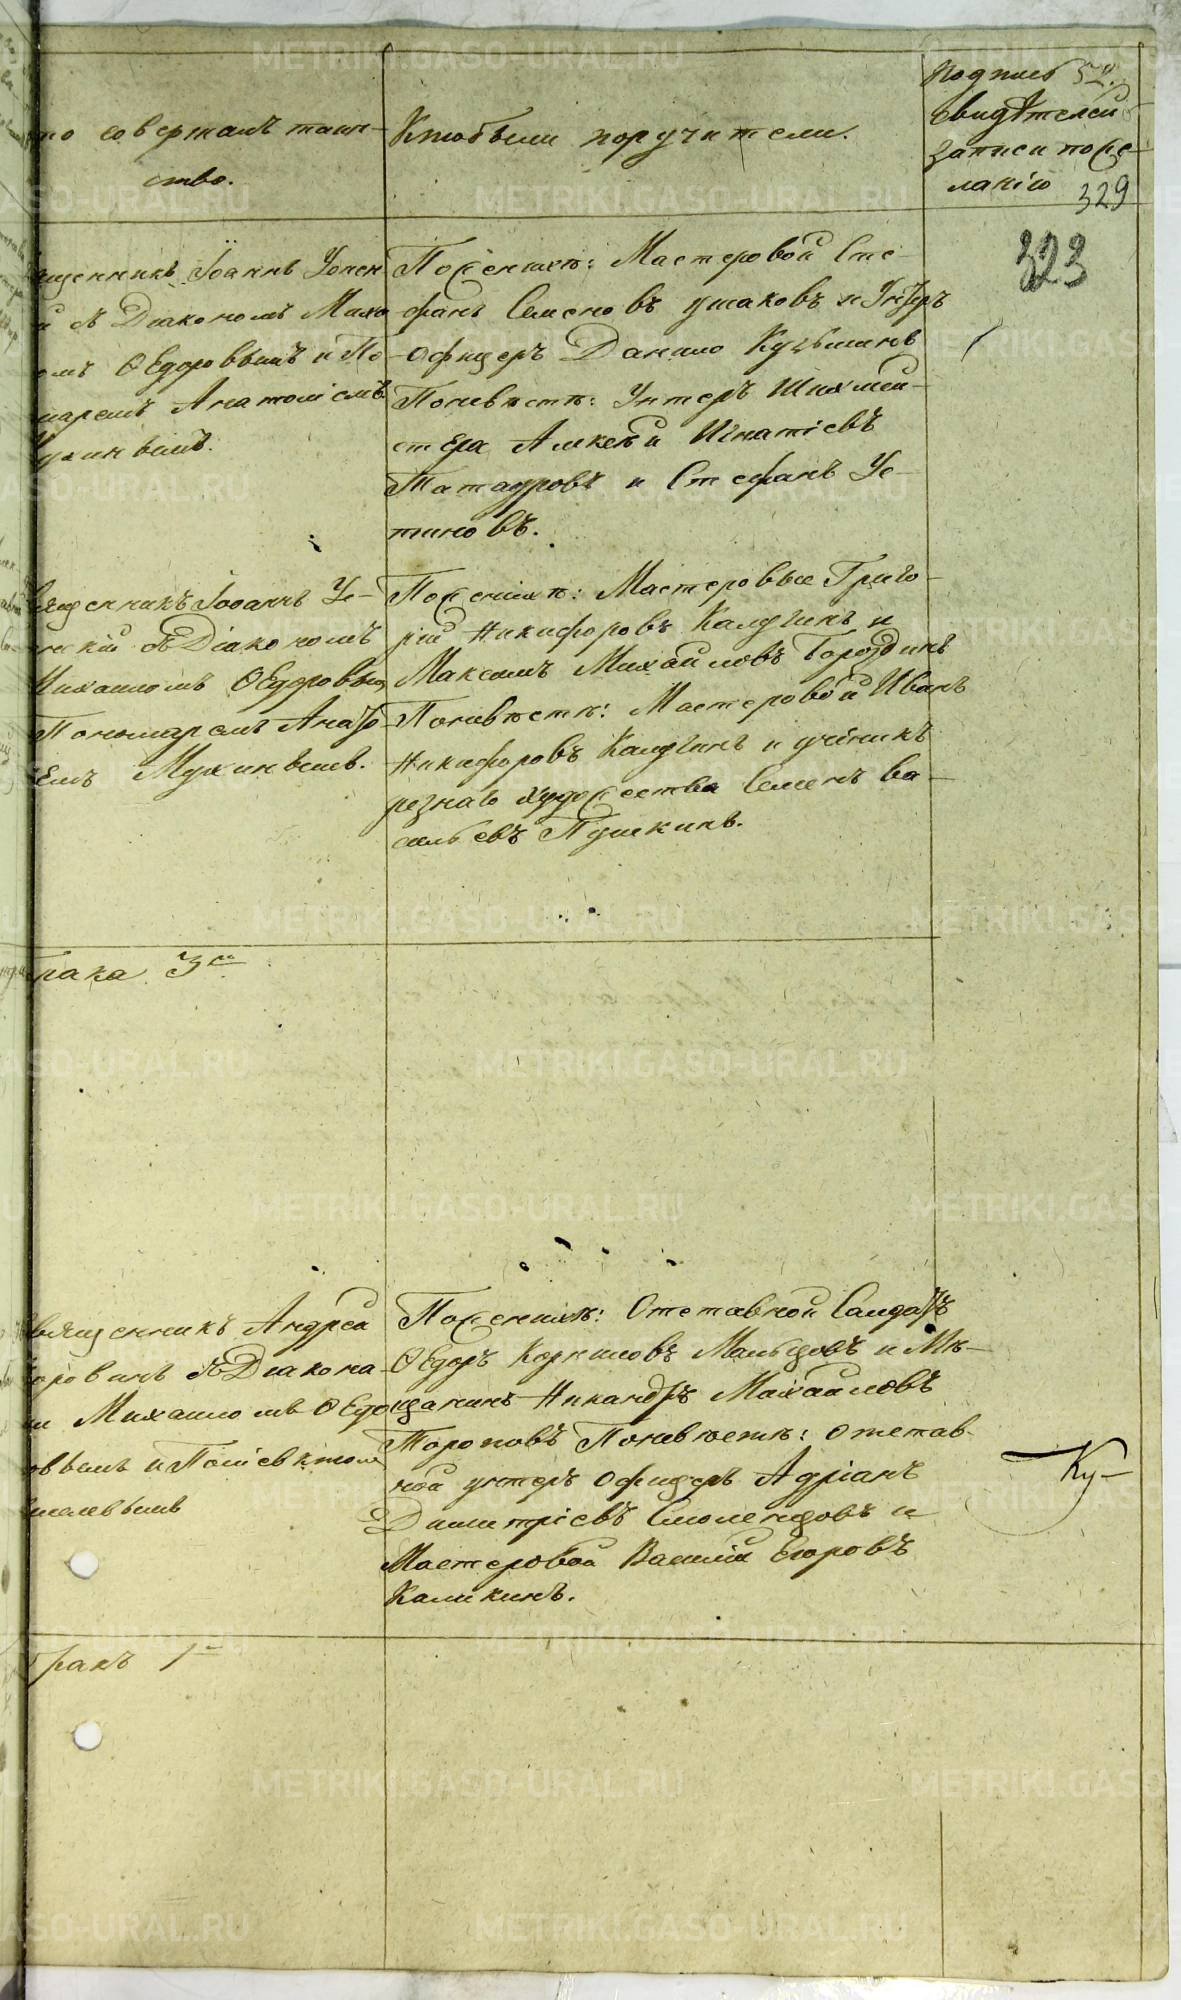 то совершалъ таин-
ство.
Кто были поручители.
Подпись
свидѣтелей
записи по же-
ланію 329
323
ященникъ Іоаннъ Успен
й съ Діакономъ Миха
омъ Ѳедоровымъ и По
маремъ Анатоліемъ
Мухинымъ.
По женихѣ: Мастеровой Сте-
фанъ Семеновъ Ушаковъ и Унтеръ
Офицеръ Данило Кузьминъ
По невѣстѣ: Унтеръ Шихмей-
стера Алексѣй Игнатіевъ
Татауровъ и Стефанъ Ус-
тиновъ.
Священникъ Іоаннъ Ус-
пенскій съ Діакономъ
Михаиломъ Ѳедоровым
Пономаремъ Анато
емъ Мухинымъ.
По женихѣ: Мастеровые Григо-
рій Никифоровъ Калугинъ и
Максимъ Михайловъ Бороздинъ
По невѣстѣ: Мастеровой Иванъ
Никифоровъ Калугинъ и ученикъ
резнаго художества Семенъ Ва-
сильевъ Пушкинъ.
брака 3
Священникъ Андрей
оровинъ съ Діакона
ми Михаиломъ Ѳедо
овымъ и Поліевктом
По женихѣ: Отставной Салдатъ
Ѳедоръ Корниловъ Мальцовъ и Мѣ-
щанинъ Никандръ Михайловъ
Тороповъ По невѣстѣ: Отстав-
ной унтеръ Офицеръ Адріанъ
Димитріевъ Смоленцовъ и
Мастеровой Василій Егоровъ
Каликинъ.
Ку-
бракъ 1
METRIKI.GASO-URAL.RU